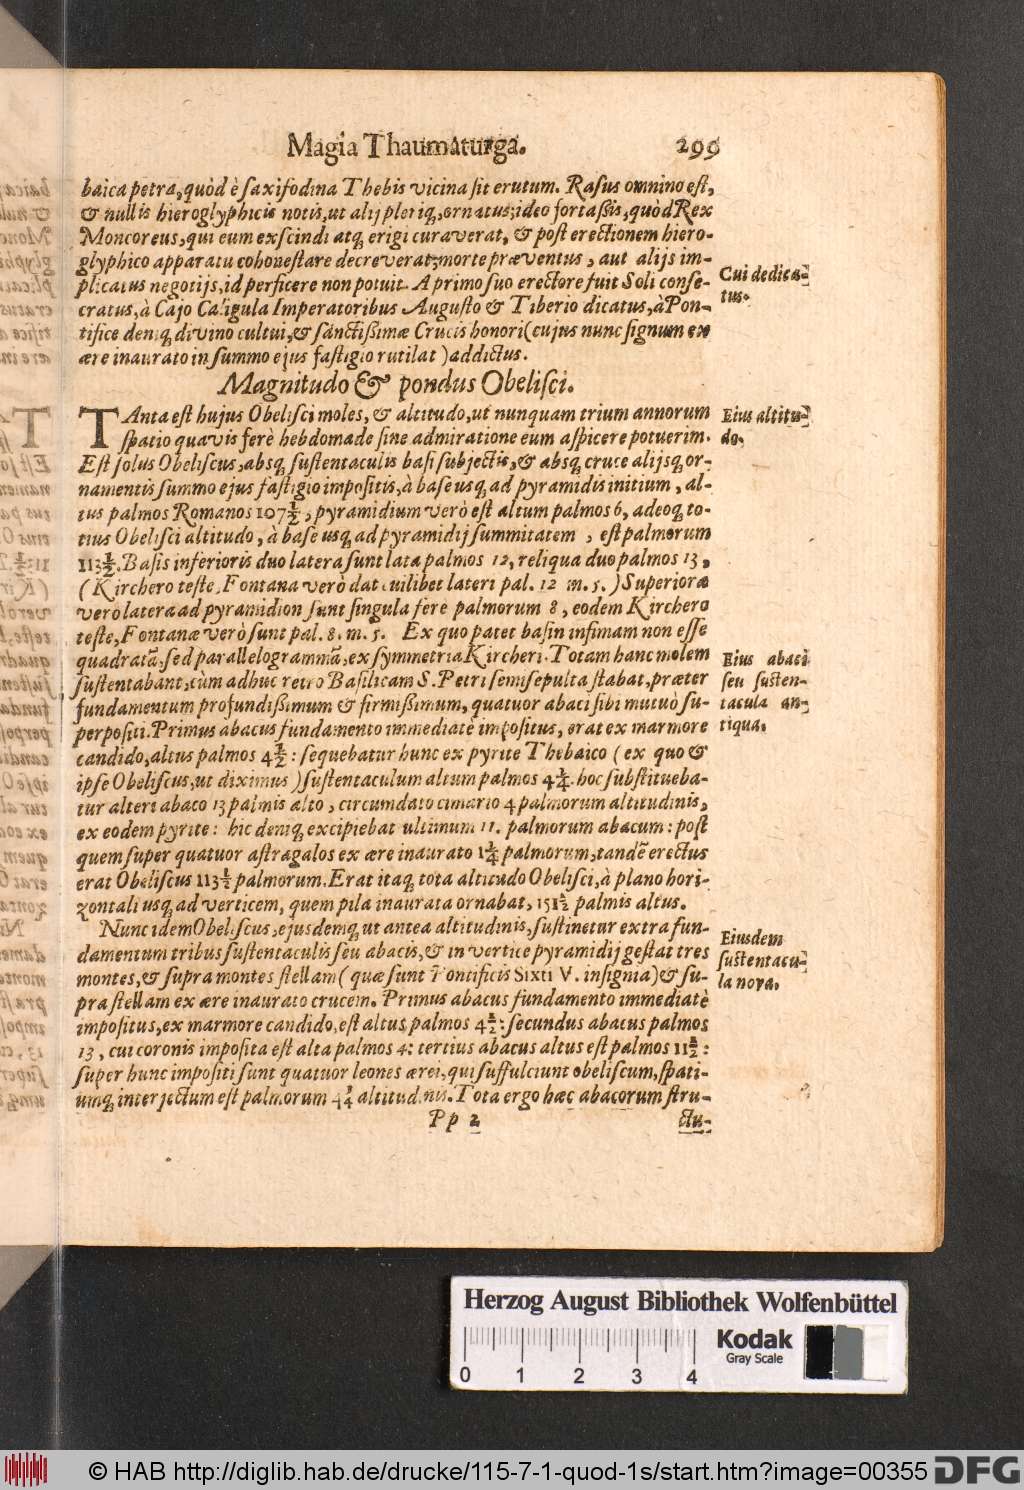 Magia Thaumaturga. 299
baica petra, quòd è saxifodina Thebis vicina sit erutum. Rasus omnino est,
& nullis hieroglyphicis notis, ut alij pleriq, ornatus; ideo fortaßis, quòd Rex
Moncoreus, qui eum exscindi atq erigi curaverat, & post erectionem hiero-
glyphico apparatu cohonestare decreverat; morte præventus, aut alijs im-
plicatus negotijs, id perficere non potuit. A primo suo erectore fuit Soli conse-
cratus, à Cajo Caligula Imperatoribus Augusto & Tiberio dicatus, à Pon-
tifice deniq divino cultui, & sanctißimæ Crucis honori (cujus nunc signum ex
ære inaurato in summo ejus fastigio rutilat) addictus.
Cui dedica-
tus.
Magnitudo & pondus Obelisci.
TAnta est hujus Obelisci moles, & altitudo, ut nunquam trium annorum
spatio quavis ferè hebdomade sine admiratione eum aspicere potuerim.
Est solus Obeliscus, absq sustentaculis basi subjectis, & absq cruce alijsq or-
namentis summo ejus fastigio impositis, à base usq ad pyramidis initium, al-
tus palmos Romanos 107½, pyramidium verò est altum palmos 6, adeoq to-
tius Obelisci altitudo, à base usq ad pyramidij summitatem, est palmorum
113½. Basis inferioris duo latera sunt lata palmos 12, reliqua duo palmos 13,
(Kirchero teste, Fontana verò dat cuilibet lateri pal. 12 m. 5.) Superiora
verò latera ad pyramidion sunt singula ferè palmorum 8, eodem Kirchero
teste, Fontanæ verò sunt pal. 8. m. 5. Ex quo patet basin infimam non esse
quadratã, sed parallelogrammã, ex symmetria Kircheri. Totam hanc molem
sustentabant, cùm adhuc retro Basilicam S. Petri semisepulta stabat, præter
fundamentum profundißimum & firmißimum, quatuor abaci sibi mutuò su-
perpositi. Primus abacus fundamento immediatè impositus, erat ex marmore
candido, altus palmos 4½: sequebatur hunc ex pyrite Thebaico (ex quo &
ipse Obeliscus, ut diximus) sustentaculum altum palmos 4¼. hoc substitueba-
tur alteri abaco 13 palmis alto, circumdato cimatio 4 palmorum altitudinis,
ex eodem pyrite: hic deniq excipiebat ultimum 11. palmorum abacum: post
quem super quatuor astragalos ex ære inaurato 1¼ palmorum, tandẽ erectus
erat Obeliscus 113½ palmorum. Erat itaq tota altitudo Obelisci, à plano hori-
zontali usq ad verticem, quem pila inaurata ornabat, 151½ palmis altus.
Eius altitu-
do.
Eius abaci
seu susten-
tacula an-
tiqua.
Nunc idem Obeliscus, ejusdemq ut antea altitudinis, sustinetur extra fun-
damentum tribus sustentaculis seu abacis, & in vertice pyramidij gestat tres
montes, & supra montes stellam (quæ sunt Pontificis Sixti V. insignia) & su-
pra stellam ex ære inaurato crucem. Primus abacus fundamento immediatè
impositus, ex marmore candido, est altus palmos 4½: secundus abacus palmos
13, cui coronis imposita est alta palmos 4: tertius abacus altus est palmos 11½:
super hunc impositi sunt quatuor leones ærei, qui suffulciunt obeliscum, spati-
umq interjectum est palmorum 4¼ altitudinis. Tota ergo hæc abacorum stru-
Eiusdem
sustentacu-
la nova.
Pp 2 ctu-
Herzog August Bibliothek Wolfenbüttel
0 1 2 3 4
Kodak
Gray Scale
© HAB http://diglib.hab.de/drucke/115-7-1-quod-1s/start.htm?image=00355 DFG